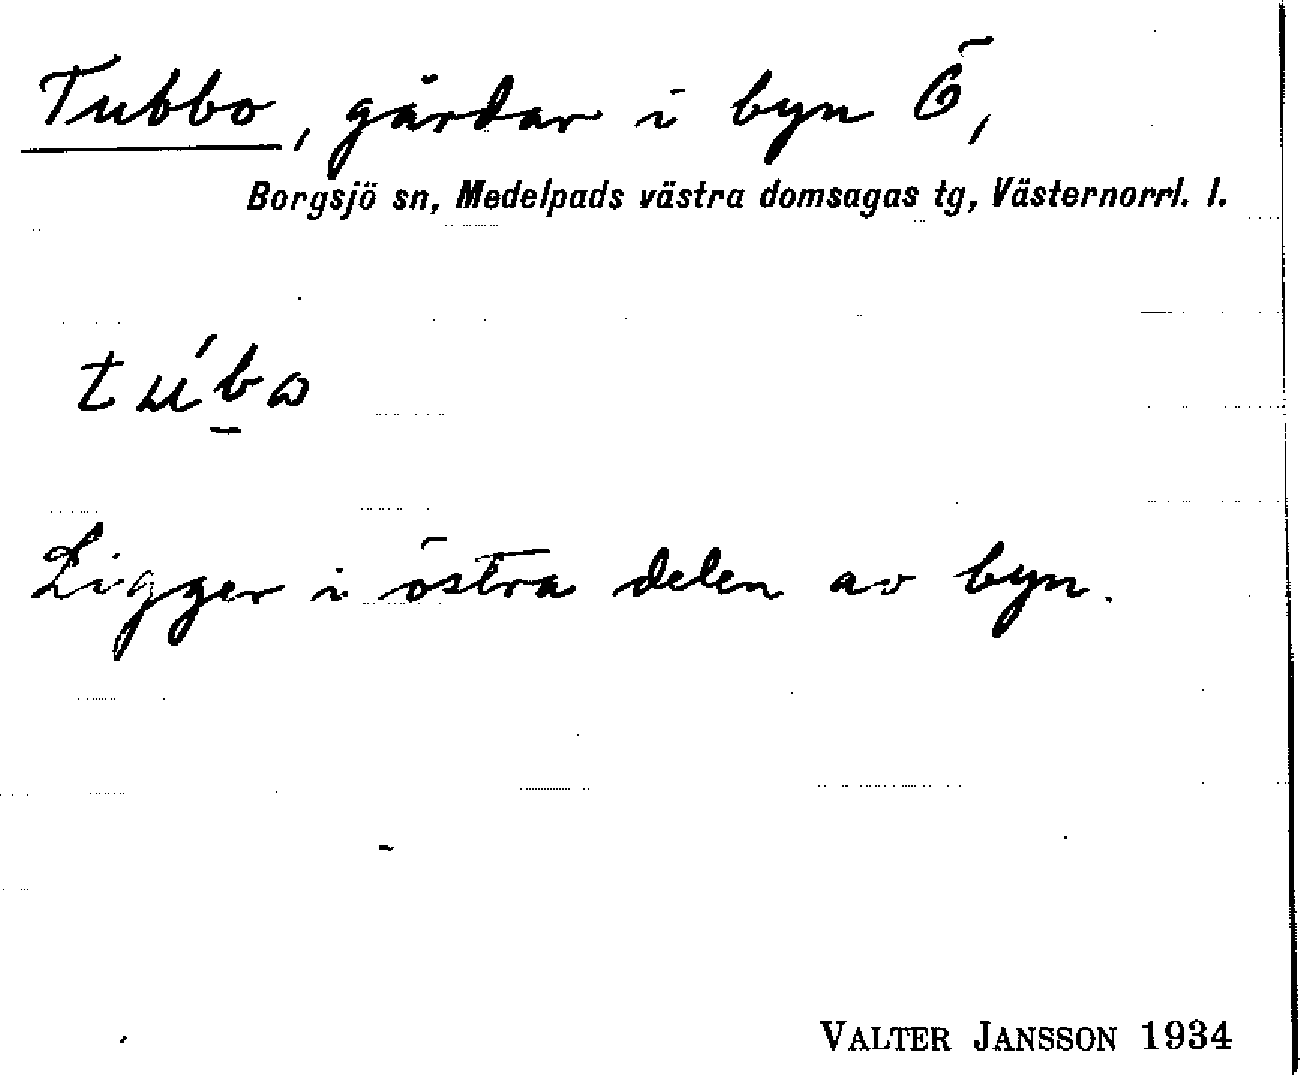 Tubbo, gårdar i byn Ö,
Borgsjö sn, Medelpads västra domsagas tg, Västernorrl. l.
túb̠ω
Ligger i östra delen av byn.
VALTER JANSSON 1934